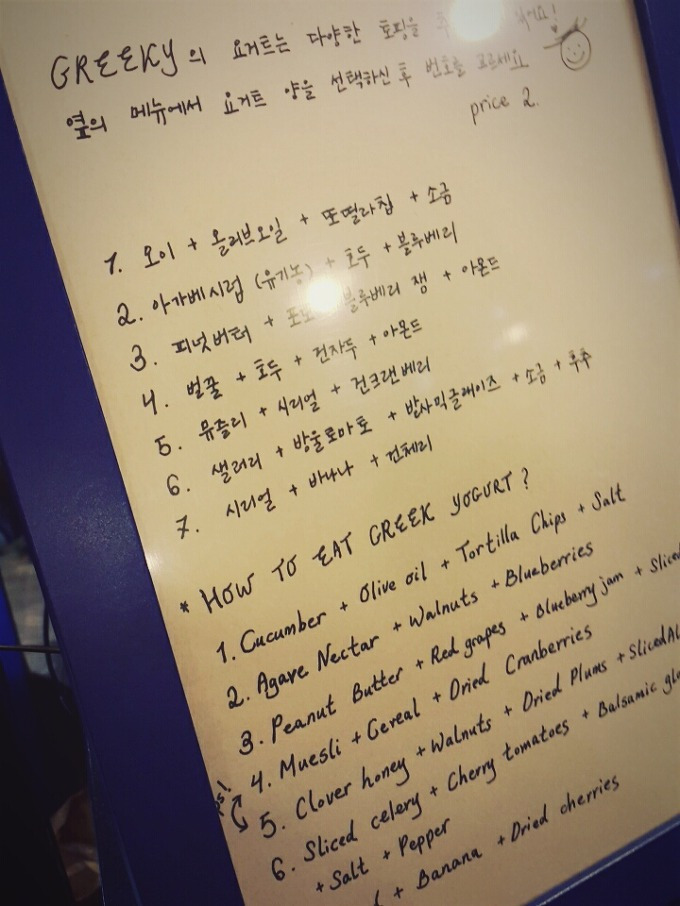 GREEKY의 요거트는 다양한 토핑을
옆의 메뉴에서 요거트 양을 선택하신 후 번호를 고르세요
price 2.
1. 오이 + 올리브오일 + 또띨라칩 + 소금
2. 아가베시럽 (유기농) + 호두 + 블루베리
3. 피넛버터 + 블루베리 잼 + 아몬드
4. 벌꿀 + 호두 + 건자두 + 아몬드
5. 뮤즐리 + 시리얼 + 건크랜베리
6. 샐러리 + 방울토마토 + 발사믹글레이즈 + 소금 + 후추
7. 시리얼 + 바나나 + 건체리
* HOW TO EAT GREEK YOGURT?
1. Cucumber + Olive oil + Tortilla Chips + Salt
2. Agave Nectar + Walnuts + Blueberries
3. Peanut Butter + Red grapes + Blueberry jam + Sliced
4. Muesli + Cereal + Dried Cranberries
5. Clover honey + Walnuts + Dried Plums + Sliced Al
6. Sliced celery + Cherry tomatoes + Balsamic gla
+ Salt + Pepper
+ Banana + Dried cherries